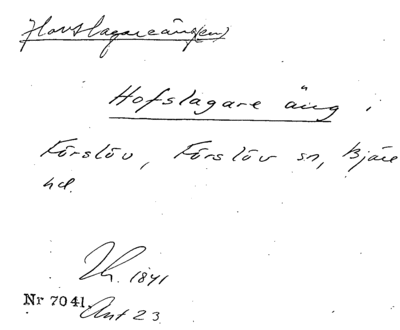 Hovslagareäng(en)
Hofslagare äng i
Förslöv, Förslöv sn, Bjäre
hd.
Th. 1841
Nr 7041. Ant 23